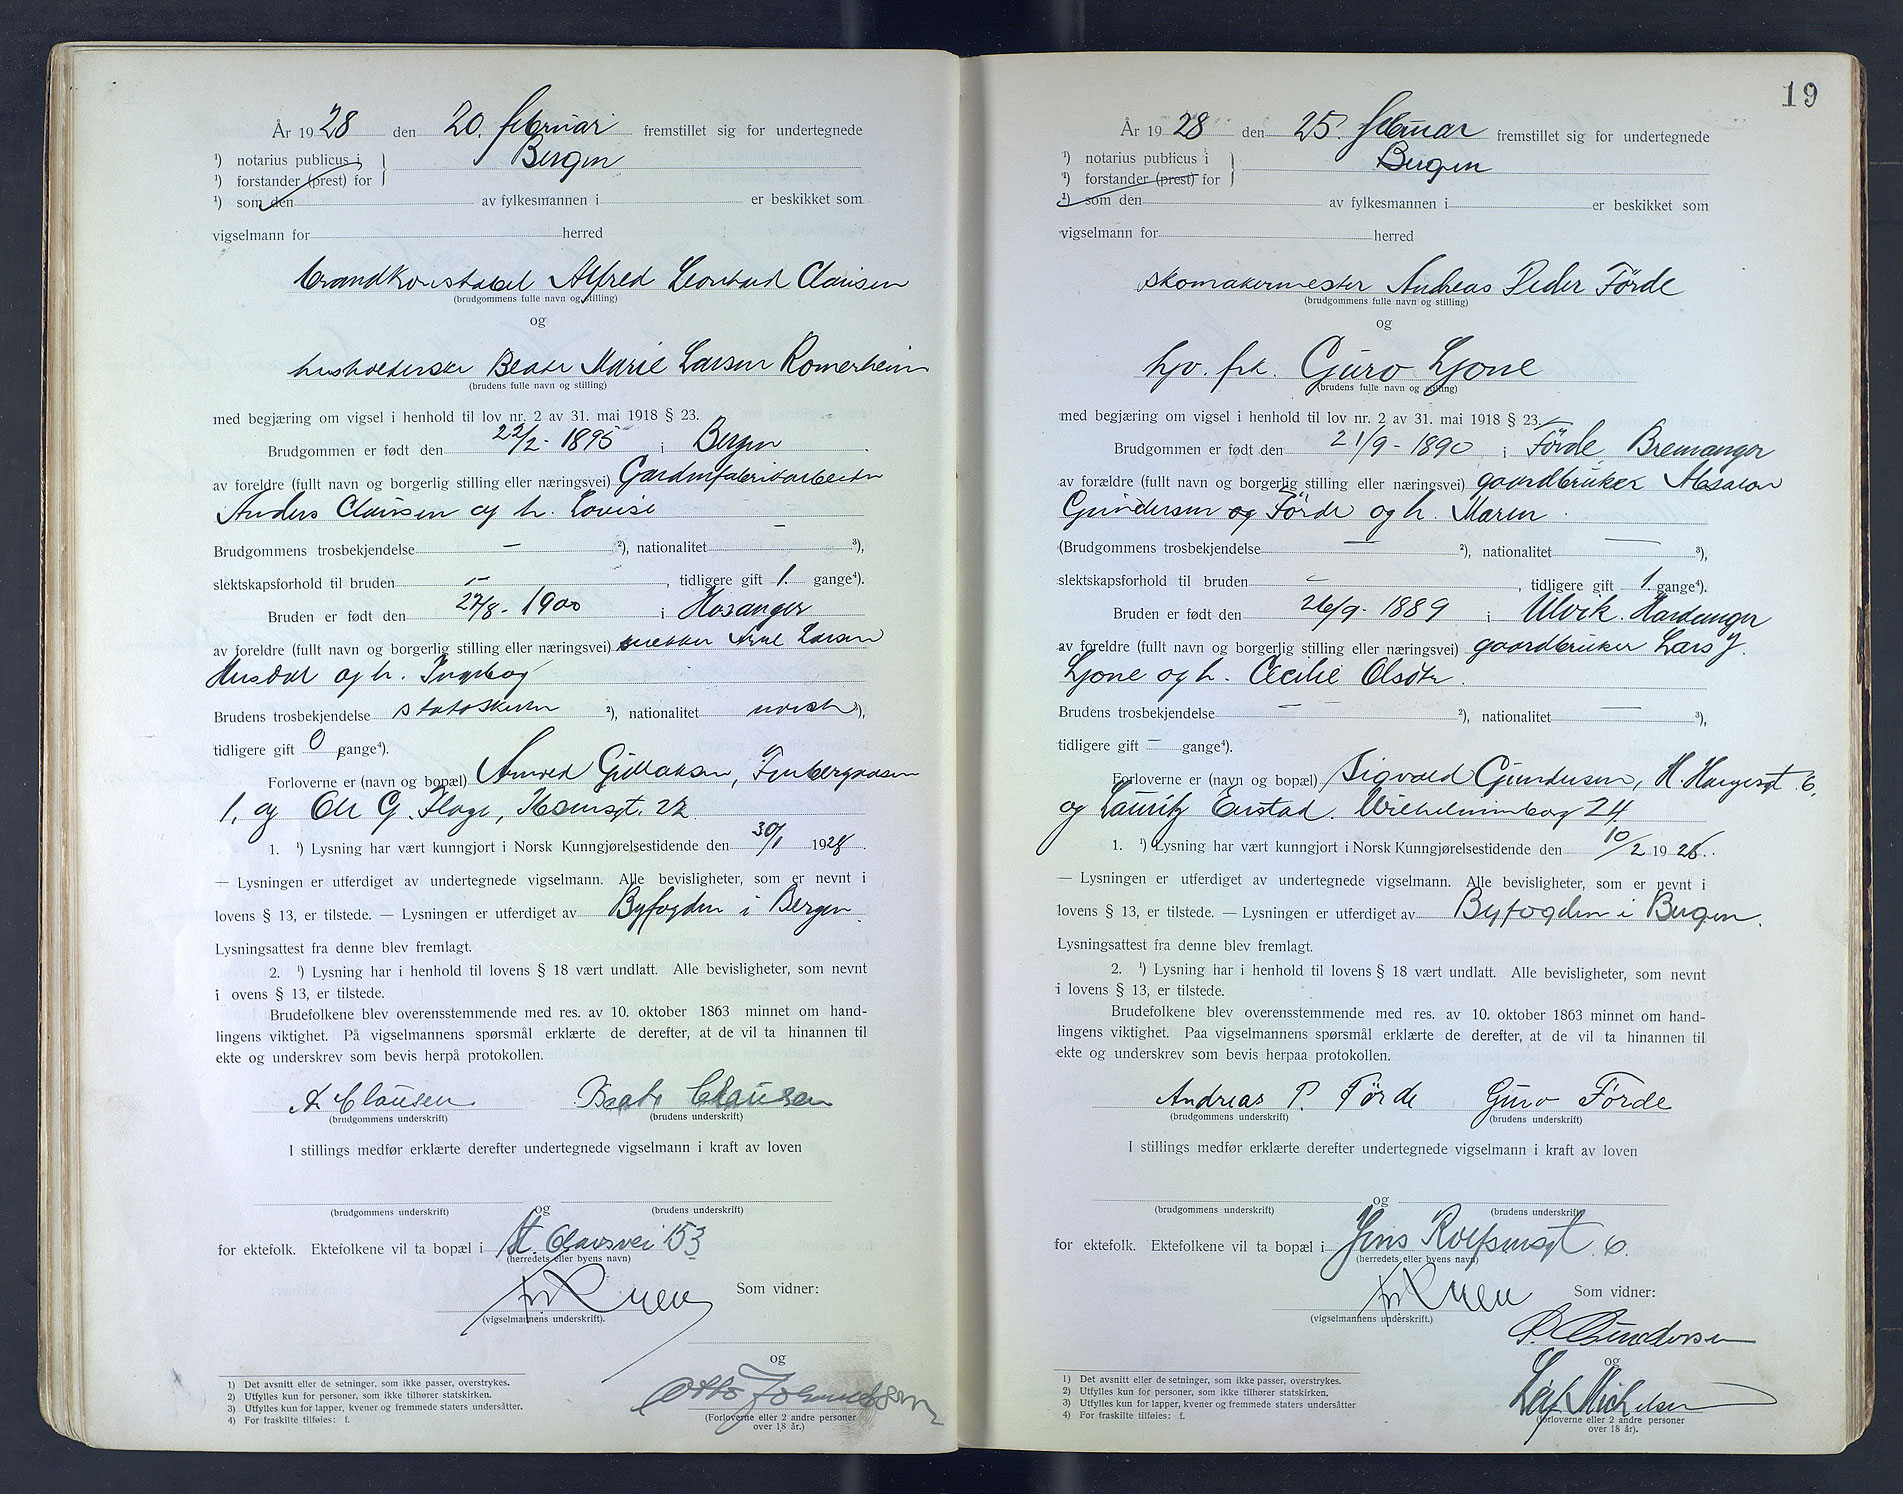 År 1928 den 20. februari fremstillet sig for undertegnede
¹) notarius publicus i
Bergen
¹) forstander (prest) for
¹) som den av fylkesmannen i er beskikket som
vigselmann for herred
brandkonstabel Alfred Leonhard Clausen
(brudgommens fulle navn og stilling)
og
husholderske Beate Marie Larsen Romerheim
(brudens fulle navn og stilling)
med begjæring om vigsel i henhold til lov nr. 2 av 31. mai 1918 § 23.
Brudgommen er født den 22/2 - 1895 i Bergen
av foreldre (fullt navn og borgerlig stilling eller næringsvei) Gardinfabrikarbeider
Anders Clausen og h. Lovise
Brudgommens trosbekjendelse — ²), nationalitet — ³),
slektskapsforhold til bruden — , tidligere gift 1. gange⁴).
Bruden er født den 27/8 - 1900 i Hosanger
av foreldre (fullt navn og borgerlig stilling eller næringsvei) snekker Arne Larsen
Husdal og h. Ingeborg
Brudens trosbekjendelse statskirken ²), nationalitet norsk ³),
tidligere gift 0 gange⁴).
Forloverne er (navn og bopæl) Gullaksen,
1, og Ole G. Flage, 22
1. ¹) Lysning har vært kunngjort i Norsk Kunngjørelsestidende den 30/1 1928.
— Lysningen er utferdiget av undertegnede vigselmann. Alle bevisligheter, som er nevnt i
lovens § 13, er tilstede. — Lysningen er utferdiget av Byfogden i Bergen.
Lysningsattest fra denne blev fremlagt.
2. ¹) Lysning har i henhold til lovens § 18 vært undlatt. Alle bevisligheter, som nevnt
i ovens § 13, er tilstede.
Brudefolkene blev overensstemmende med res. av 10. oktober 1863 minnet om hand-
lingens viktighet. På vigselmannens spørsmål erklærte de derefter, at de vil ta hinannen til
ekte og underskrev som bevis herpå protokollen.
A Clausen Beate Clausen
(brudgommens underskrift) (brudens underskrift)
I stillings medfør erklærte derefter undertegnede vigselmann i kraft av loven
og
(brudgommens underskrift) (brudens underskrift)
for ektefolk. Ektefolkene vil ta bopæl i St. Olavsvei 153
(herredets eller byens navn)
Som vidner:
(vigselmannens underskrift).
og
Otto Johannessen
(Forloverne eller 2 andre personer
over 18 år.)
1) Det avsnitt eller de setninger, som ikke passer, overstrykes.
2) Utfylles kun for personer, som ikke tilhører statskirken.
3) Utfylles kun for lapper, kvener og fremmede staters undersåtter.
4) For fraskilte tilføies: f.
19
År 1928 den 25. februar fremstillet sig for undertegnede
¹) notarius publicus i
Bergen
¹) forstander (prest) for
¹) som den av fylkesmannen i er beskikket som
vigselmann for herred
skomakermester Andreas Peder Förde
(brudgommens fulle navn og stilling)
og
hjv. frk. Guro Ljone
(brudens fulle navn og stilling)
med begjæring om vigsel i henhold til lov nr. 2 av 31. mai 1918 § 23.
Brudgommen er født den 21/9 - 1890 i Förde Bremanger
av forældre (fullt navn og borgerlig stilling eller næringsvei) gaardbruker Absalon
Gundersen og Förde og h. Maren.
(Brudgommens trosbekjendelse — ²), nationalitet — ³),
slektskapsforhold til bruden — , tidligere gift 1 gange⁴).
Bruden er født den 26/9 - 1889 i Ulvik. Hardanger
av foreldre (fullt navn og borgerlig stilling eller næringsvei) gaardbruker Lars J.
Ljone og h. Cecilie
Brudens trosbekjendelse — — ²), nationalitet — ³),
tidligere gift — gange⁴).
Forloverne er (navn og bopæl) Sigvald Gundersen, H. Haugesgt 6,
og Lauritz Wilhelminborg 24.
1. ¹) Lysning har vært kunngjort i Norsk Kunngjørelsestidende den 10/2 1928.
— Lysningen er utferdiget av undertegnede vigselmann. Alle bevisligheter, som er nevnt i
lovens § 13, er tilstede. — Lysningen er utferdiget av Byfogden i Bergen.
Lysningsattest fra denne blev fremlagt.
2. ¹) Lysning har i henhold til lovens § 18 vært undlatt. Alle bevisligheter, som nevnt
i lovens § 13, er tilstede.
Brudefolkene blev overensstemmende med res. av 10. oktober 1863 minnet om hand-
lingens viktighet. Paa vigselmannens spørsmål erklærte de derefter, at de vil ta hinannen til
ekte og underskrev som bevis herpaa protokollen.
Andreas P. Förde Guro Förde
(brudgommens underskrift) (brudens underskrift)
I stillings medfør erklærte derefter undertegnede vigselmann i kraft av loven
og
(brudgommens underskrift) (brudens underskrift)
for ektefolk. Ektefolkene vil ta bopæl i Jens Rolfsensgt. 6.
(herredets eller byens navn)
Som vidner:
(vigselmannens underskrift.)
S. Gundersen
og
Leif Michelsen
(forloverne eller 2 andre personer
over 18 år).
1) Det avsnitt eller de setninger, som ikke passer, overstrykes.
2) Utfylles kun for personer, som ikke tilhører statskirken.
3) Utfylles kun for lapper, kvener og fremmede staters undersåtter
4) For fraskilte tilføies: f.